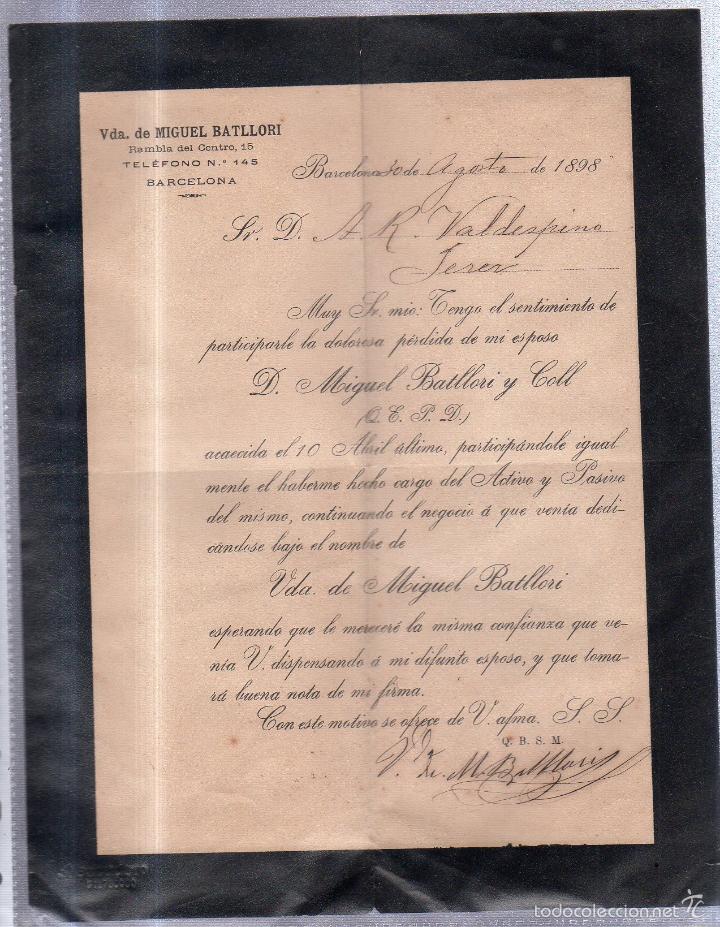 Vda. de MIGUEL BATLLORI
Rambla del Centro, 15
TELÉFONO N.º 145
BARCELONA
Barcelona 30 de Agosto de 1898
Sr. D. A. R. Valdespino
Jerez
Muy Sr. mio: Tengo el sentimiento de
participarle la dolorosa pérdida de mi esposo
D. Miguel Batllori y Coll
(Q. E. P. D.)
acaecida el 10 Abril último, participándole igual
mente el haberme hecho cargo del Activo y Pasivo
del mismo, continuando el negocio á que venía dedi-
cándose bajo el nombre de
Vda. de Miguel Batllori
esperando que le mereceré la misma confianza que ve-
nía V. dispensando á mi difunto esposo, y que toma-
rá buena nota de mi firma.
Con este motivo se ofrece de V. afma. S. S.
Q. B. S. M.
Vda de M. Batllori
todocoleccion.net